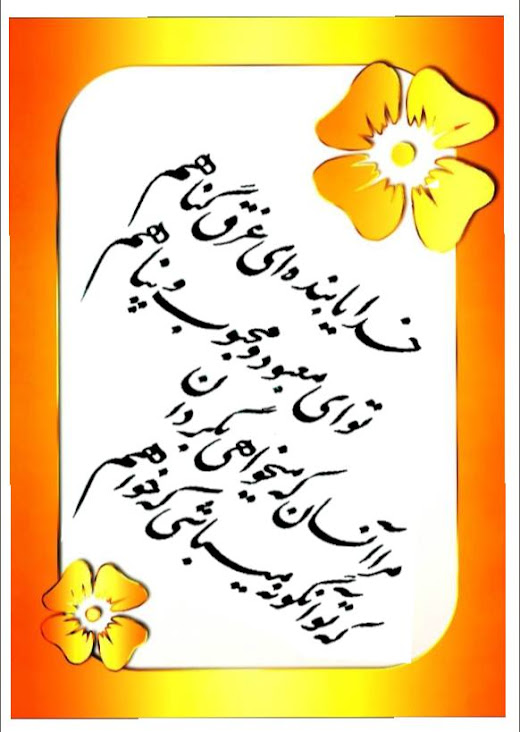 خدایا بنده‌ای غرق گناهم
تو ای معبود و محبوب و پناهم
مرا آنسان که میخواهی بگردان
که تو آنگونه میباشی که خواهم